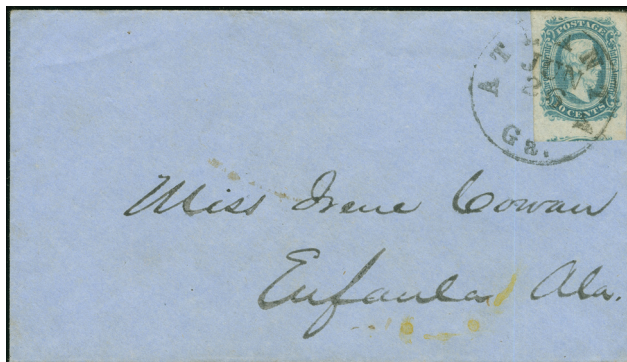 POSTAGE
ATLANTA
CENTS
Ga.
Miss Irene Cowan
Eufaula Ala.